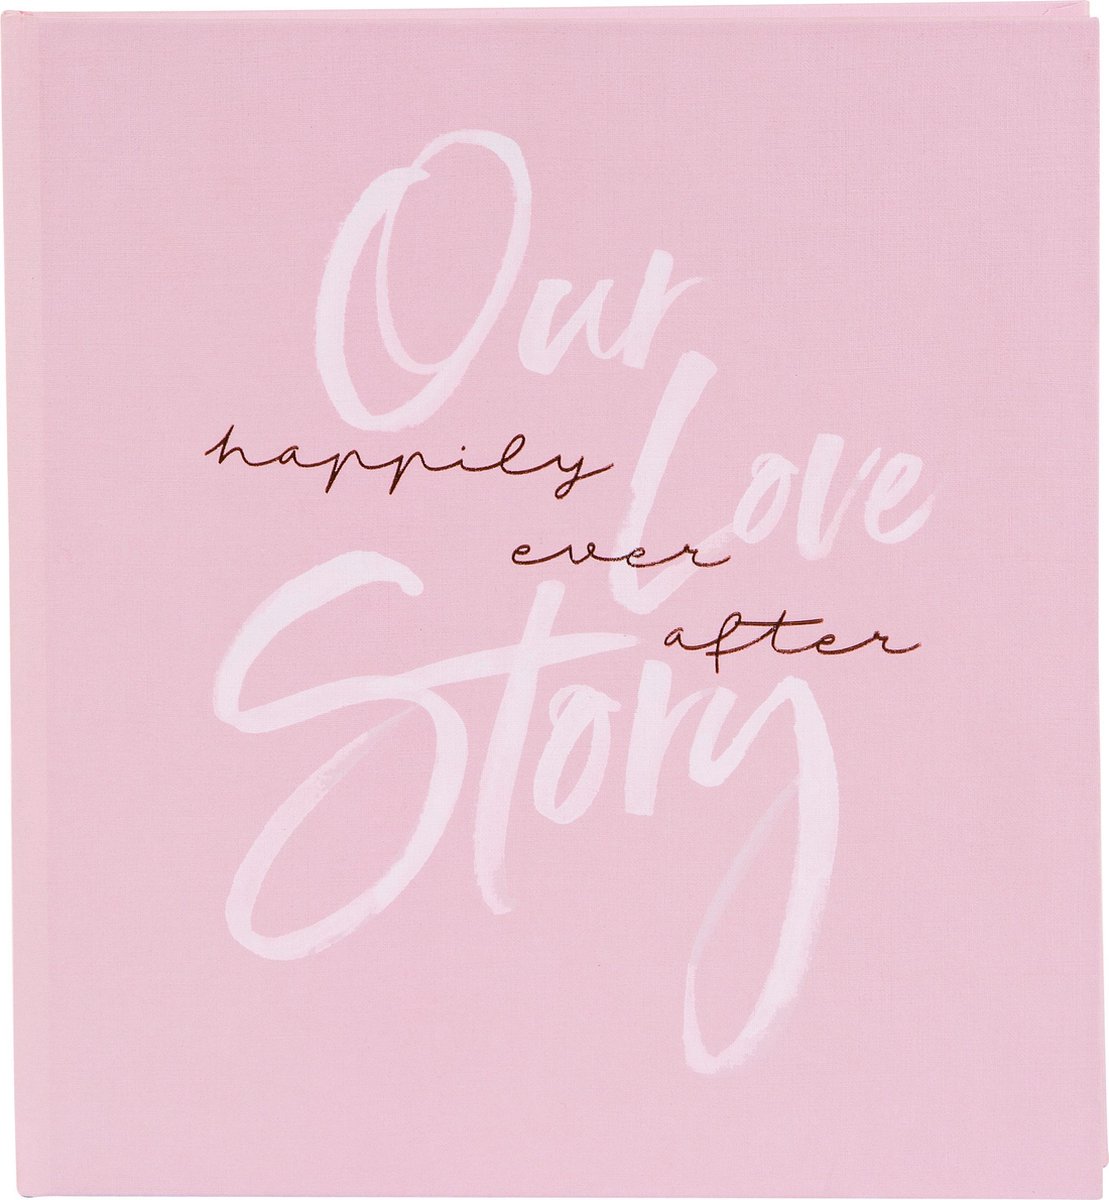 Our
Love
Story
happily
ever
after